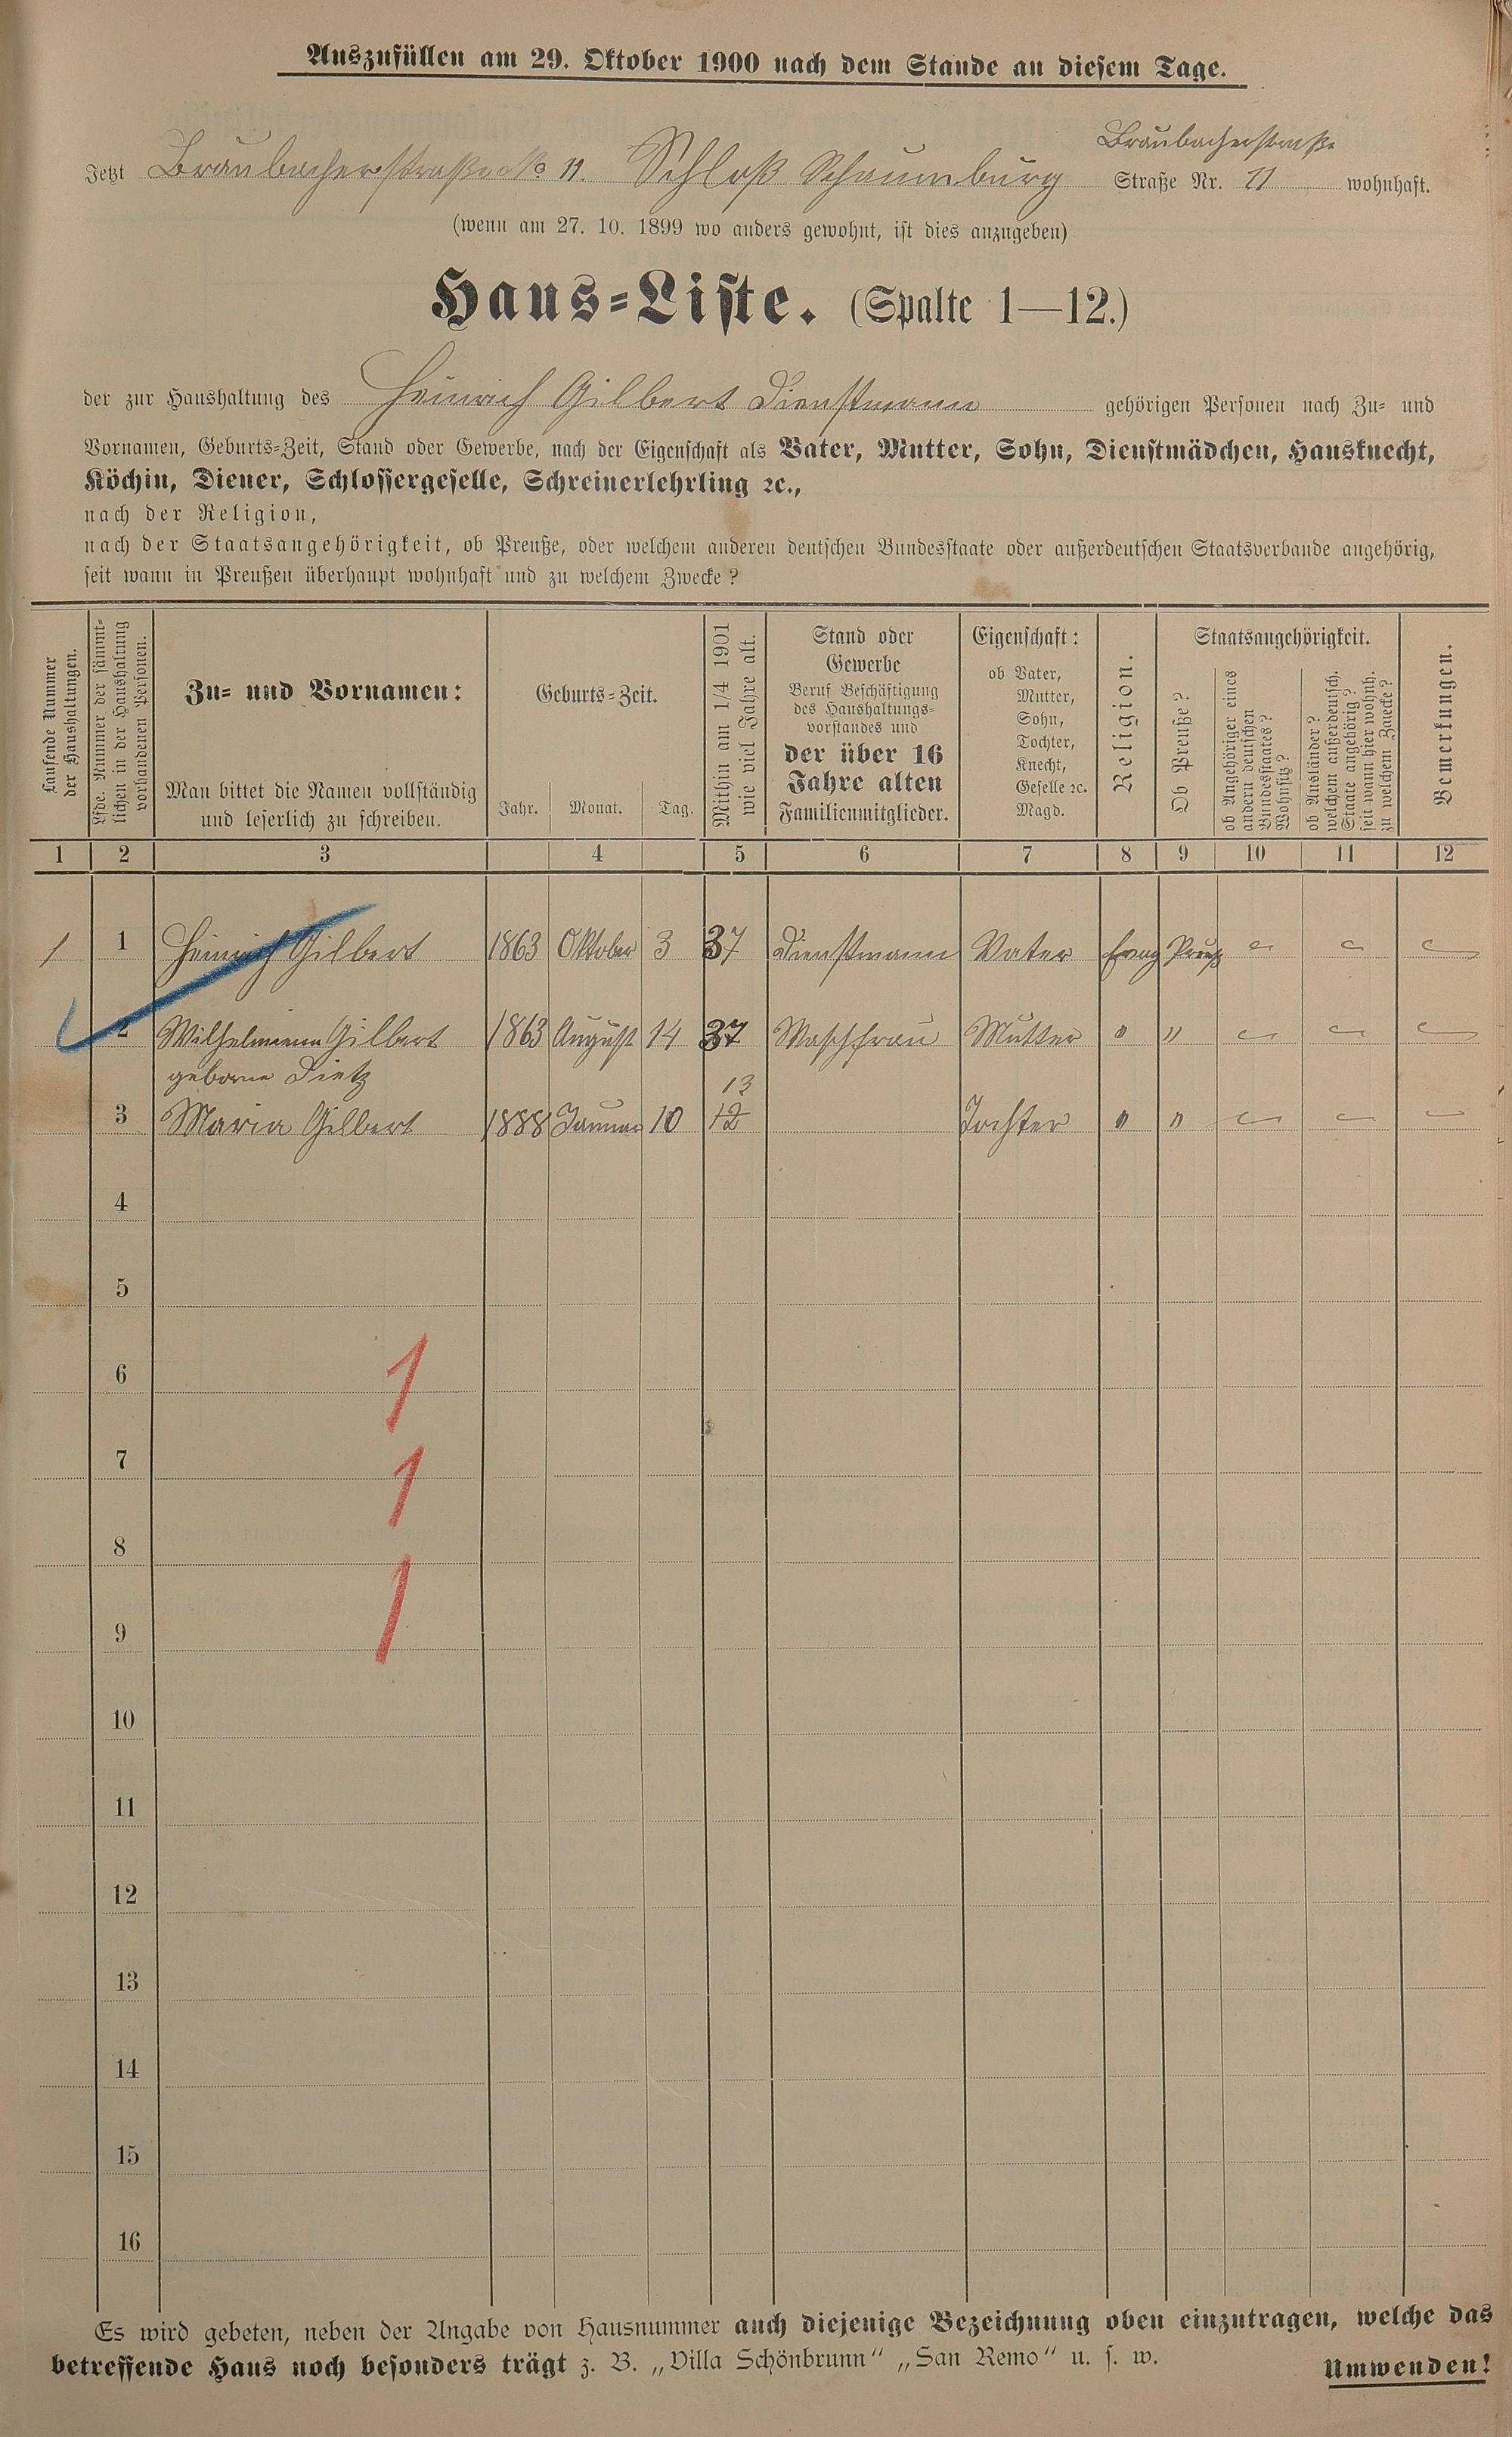 Auszufüllen am 29. Oktober 1900 nach dem Stande an diesem Tage.
Braubacherstraße
Jetzt Braubacherstraße No 11. Schloß Schaumburg Straße Nr. 11 wohnhaft.
(wenn am 27. 10. 1899 wo anders gewohnt, ist dies anzugeben)
Haus-Liste. (Spalte 1—12.)
der zur Haushaltung des Heinrich Gilbert Dienstmann gehörigen Personen nach Zu- und
Vornamen, Geburts-Zeit, Stand oder Gewerbe, nach der Eigenschaft als Vater, Mutter, Sohn, Dienstmädchen, Hausknecht,
Köchin, Diener, Schlossergeselle, Schreinerlehrling ꝛc.,
nach der Religion,
nach der Staatsangehörigkeit, ob Preuße, oder welchem anderen deutschen Bundesstaate oder außerdeutschen Staatsverbande angehörig,
seit wann in Preußen überhaupt wohnhaft und zu welchem Zwecke?
Laufende Nummer
der Haushaltungen.
Lfde. Nummer der sämmt-
lichen in der Haushaltung
vorhandenen Personen.
Zu- und Vornamen:
Man bittet die Namen vollständig
und leserlich zu schreiben.
Geburts-Zeit.
Jahr. Monat. Tag.
Mithin am 1/4 1901
wie viel Jahre alt.
Stand oder
Gewerbe
Beruf Beschäftigung
des Haushaltungs-
vorstandes und
der über 16
Jahre alten
Familienmitglieder.
Eigenschaft:
ob Vater,
Mutter,
Sohn,
Tochter,
Knecht,
Geselle ꝛc.
Magd.
Religion.
Staatsangehörigkeit.
Ob Preuße?
ob Angehöriger eines
andern deutschen
Bundesstaates?
Wohnsitz?
ob Ausländer?
welchem außerdeutsch.
Staate angehörig?
seit wann hier wohnh.
zu welchem Zwecke?
Bemerkungen.
1 2 3 4 5 6 7 8 9 10 11 12
1 1 Heinrich Gilbert 1863 Oktober 3 37 Dienstmann Vater Evang Preuß
2 Wilhelmine Gilbert 1863 August 14 37 Waschfrau Mutter " "
geborne Dietz
13
3 Maria Gilbert 1888 Januar 10 12 Tochter " "
4
5
6
1
7
1
8
1
9
10
11
12
13
14
15
16
Es wird gebeten, neben der Angabe von Hausnummer auch diejenige Bezeichnung oben einzutragen, welche das
betreffende Haus noch besonders trägt z. B. „Villa Schönbrunn“ „San Remo“ u. s. w.
Umwenden!